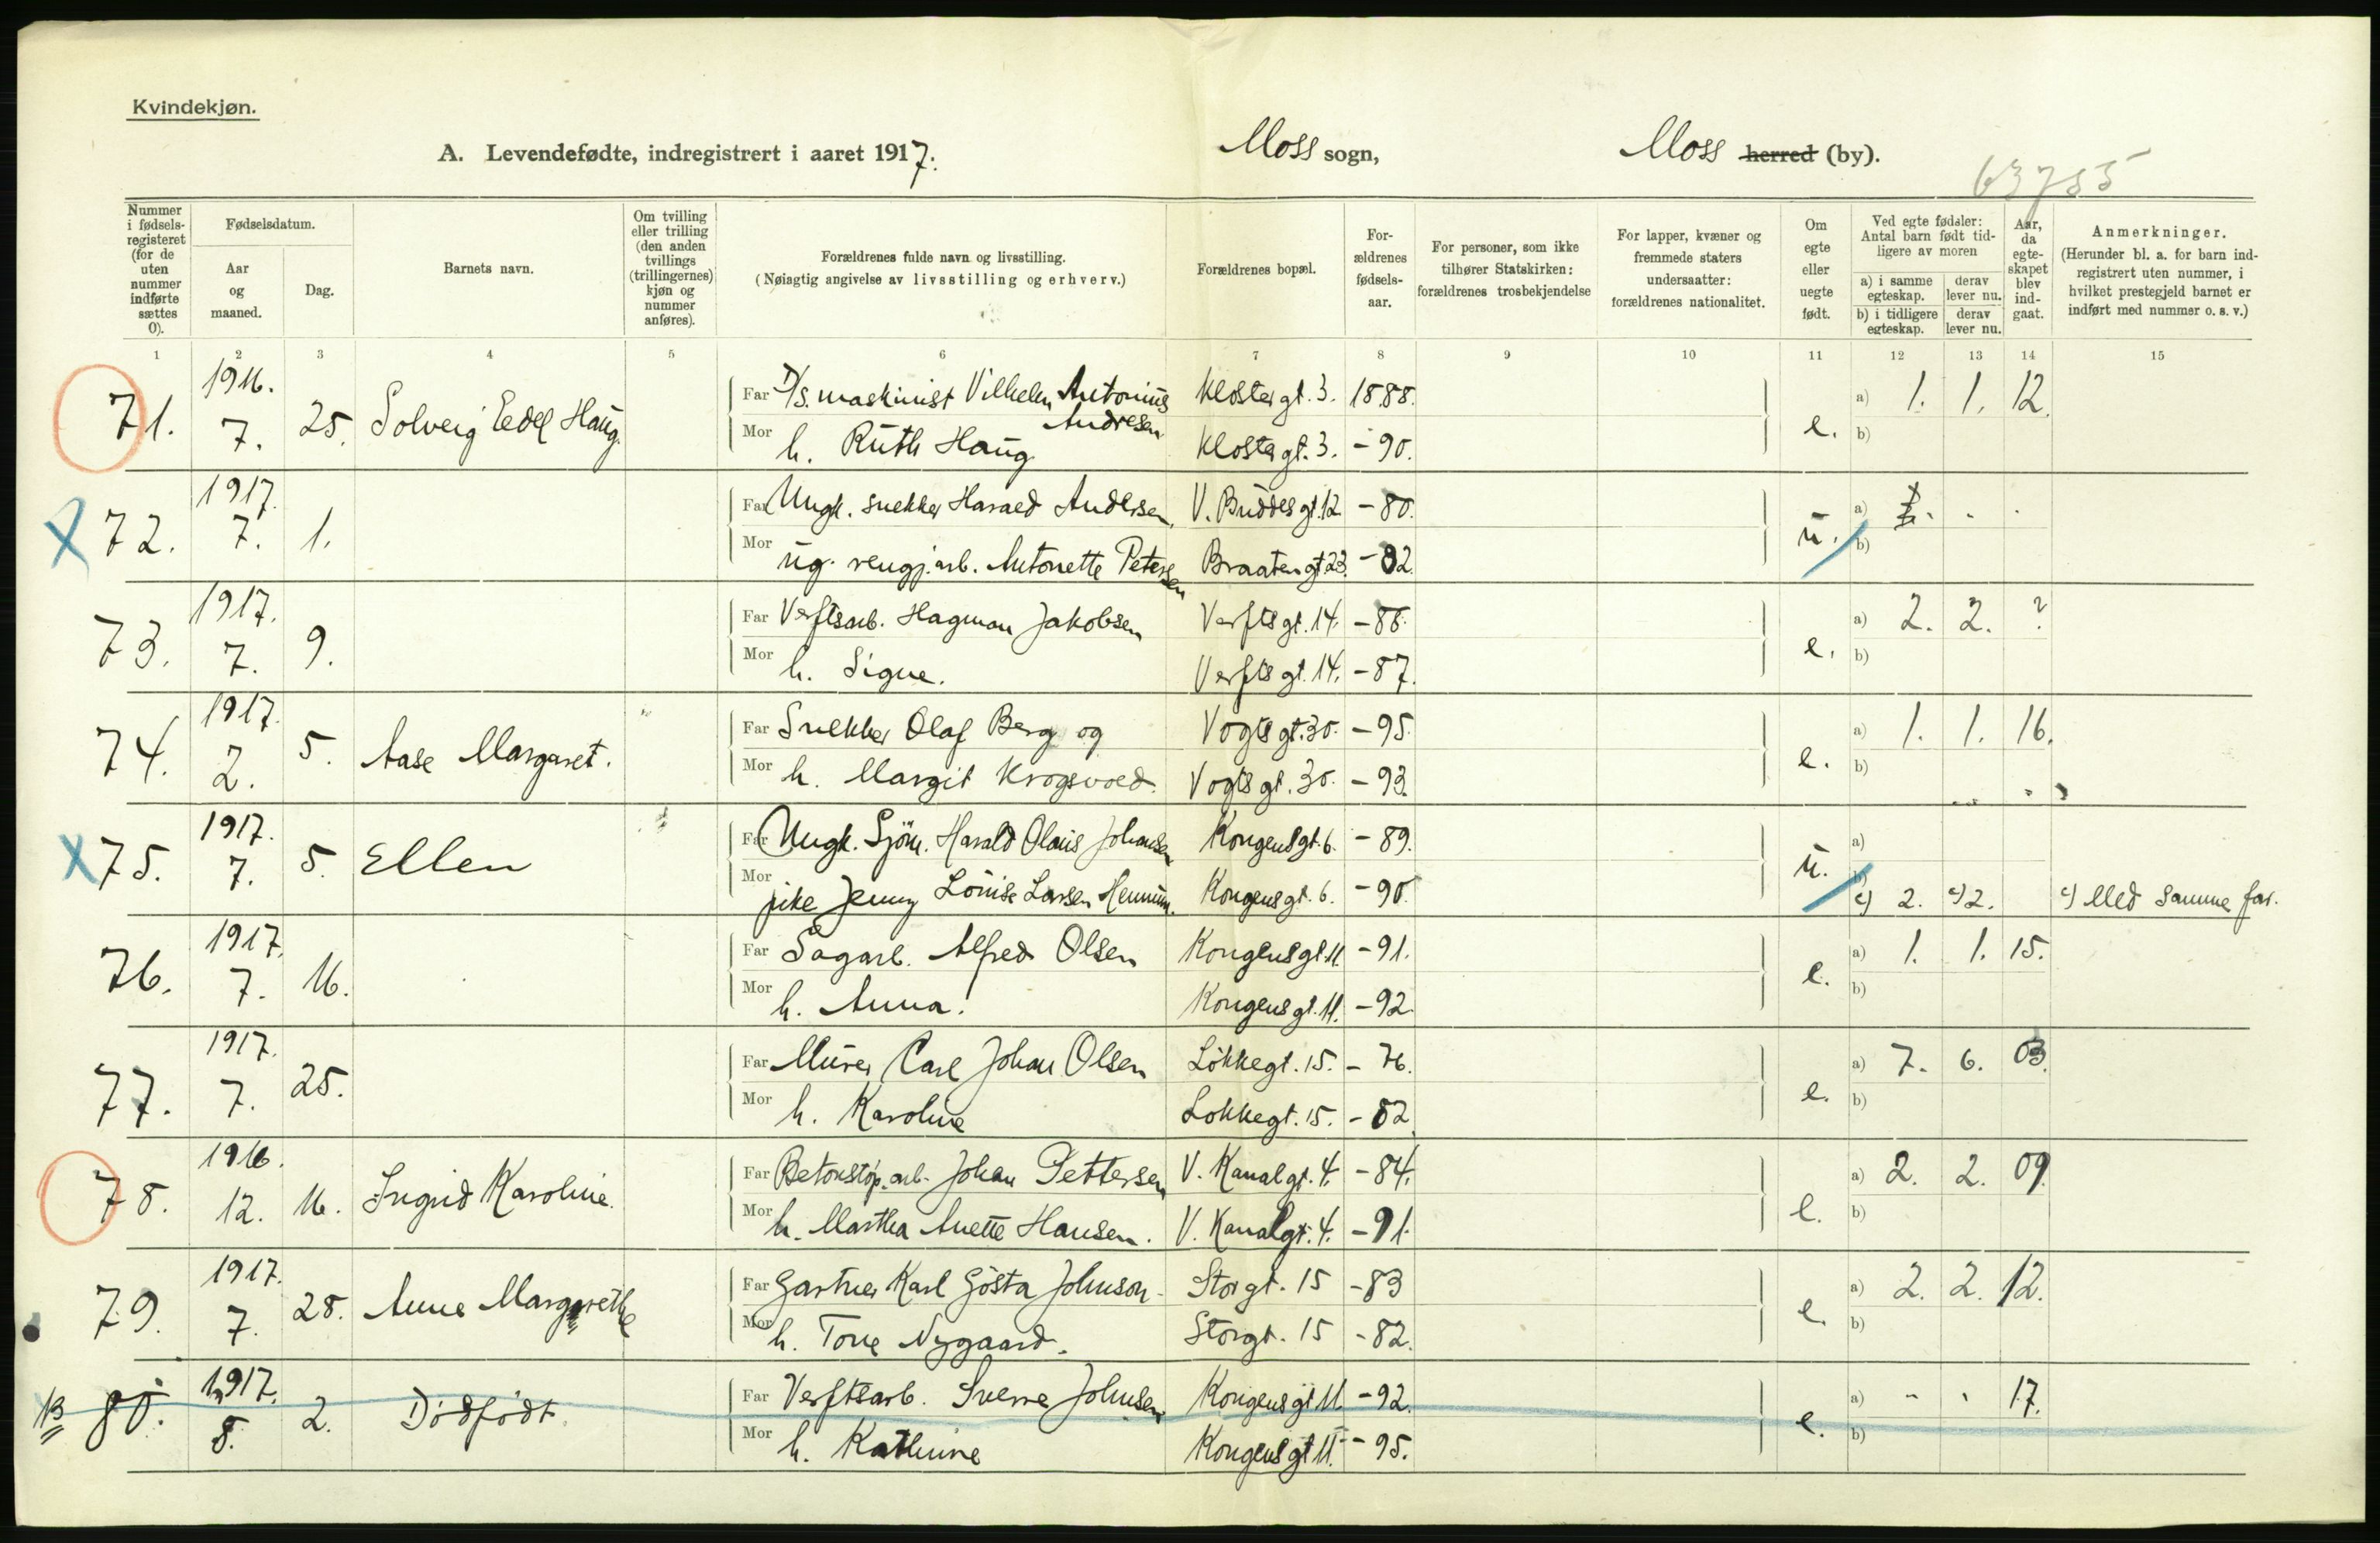 Kvindekjøn.
A. Levendefødte, indregistrert i aaret 1917. Moss sogn, Moss herred (by).
63755
Nummer i fødsels-registeret (for de uten nummer indførte sættes 0).
Fødselsdatum.
Aar og maaned.
Dag.
Barnets navn.
Om tvilling eller trilling (den anden tvillings (trillingernes) kjøn og nummer anføres).
Forældrenes fulde navn og livsstilling.
(Nøiagtig angivelse av livsstilling og erhverv.)
Forældrenes bopæl.
For-ældrenes fødsels-aar.
For personer, som ikke tilhører Statskirken: forældrenes trosbekjendelse
For lapper, kvæner og fremmede staters undersaatter: forældrenes nationalitet.
Om egte eller uegte født.
Ved egte fødsler: Antal barn født tid-ligere av moren
a) i samme egteskap. derav lever nu.
b) i tidligere egteskap. derav lever nu.
Aar, da egte-skapet blev ind-gaat.
Anmerkninger.
(Herunder bl. a. for barn ind-registrert uten nummer, i hvilket prestegjeld barnet er indført med nummer o. s. v.)
1 2 3 4 5 6 7 8 9 10 11 12 13 14 15
71. 1916. 7. 25. Solveig Eedel Haug.
Far D/s. maskinist Vilhelm Antonius Andresen Klostergt. 3. 1888. e. a) 1. 1. 12.
Mor h. Ruth Haug Klostergt. 3. -90. b)
X 72. 1917. 7. 1.
Far Ungk. snekker Harald Andersen, V. Buddesgt. 12. -80. u. a) . .
Mor ug. rengj. arb. Antonette Petersen Braatengt 23. -82. b)
73. 1917. 7. 9.
Far Verftsarb. Hagman Jakobsen Verftsgt. 14. -88. e. a) 2. 2. ?
Mor h. Signe. Verftsgt. 14. -87. b)
74. 1917. 2. 5. Aase Margaret.
Far Snekker Olaf Berg og Vogtsgt. 30. -95. e. a) 1. 1. 16.
Mor h. Margit Krogsvold. Vogtsgt. 30. -93. b)
X 75. 1917. 7. 5. Ellen
Far Ungk. Sjöm. Harald Olaus Johansen Kongensgt. 6. -89. u. a)
Mor pike Jenny Louise Larsen Hennum. Kongensgt. 6. -90. b) c) 2. c) 2. c) Med samme far.
76. 1917. 7. 16.
Far Sagarb. Alfred Olsen Kongensgt. 11. -91. e. a) 1. 1. 15.
Mor h. Anna. Kongensgt. 11. -92. b)
77. 1917. 7. 25.
Far Murer Carl Johan Olsen Løkkegt. 15. - 76. e. a) 7. 6. 03.
Mor h. Karoline Løkkegt. 15. -82. b)
78. 1916. 12. 16. Ingrid Karoline.
Far Betonstøp. arb. Johan Pettersen V. Kanalgt. 4. -84. e. a) 2. 2. 09.
Mor h. Martha Anette Hansen. V. Kanalgt. 4. -91. b)
79. 1917. 7. 28. Anne Margarethe
Far Gartner Karl Gösta Johnson Storgt. 15 -83 e. a) 2. 2. 12.
Mor h. Tove Nygaard. Storgt. 15 -82. b)
80. 1917. 8. 2. Dødfødt.
Far Verftsarb. Sverre Johnsen Kongensgt 11. -92. e. a) - . 17.
Mor h. Kathrine Kongensgt 11. - 95. b)